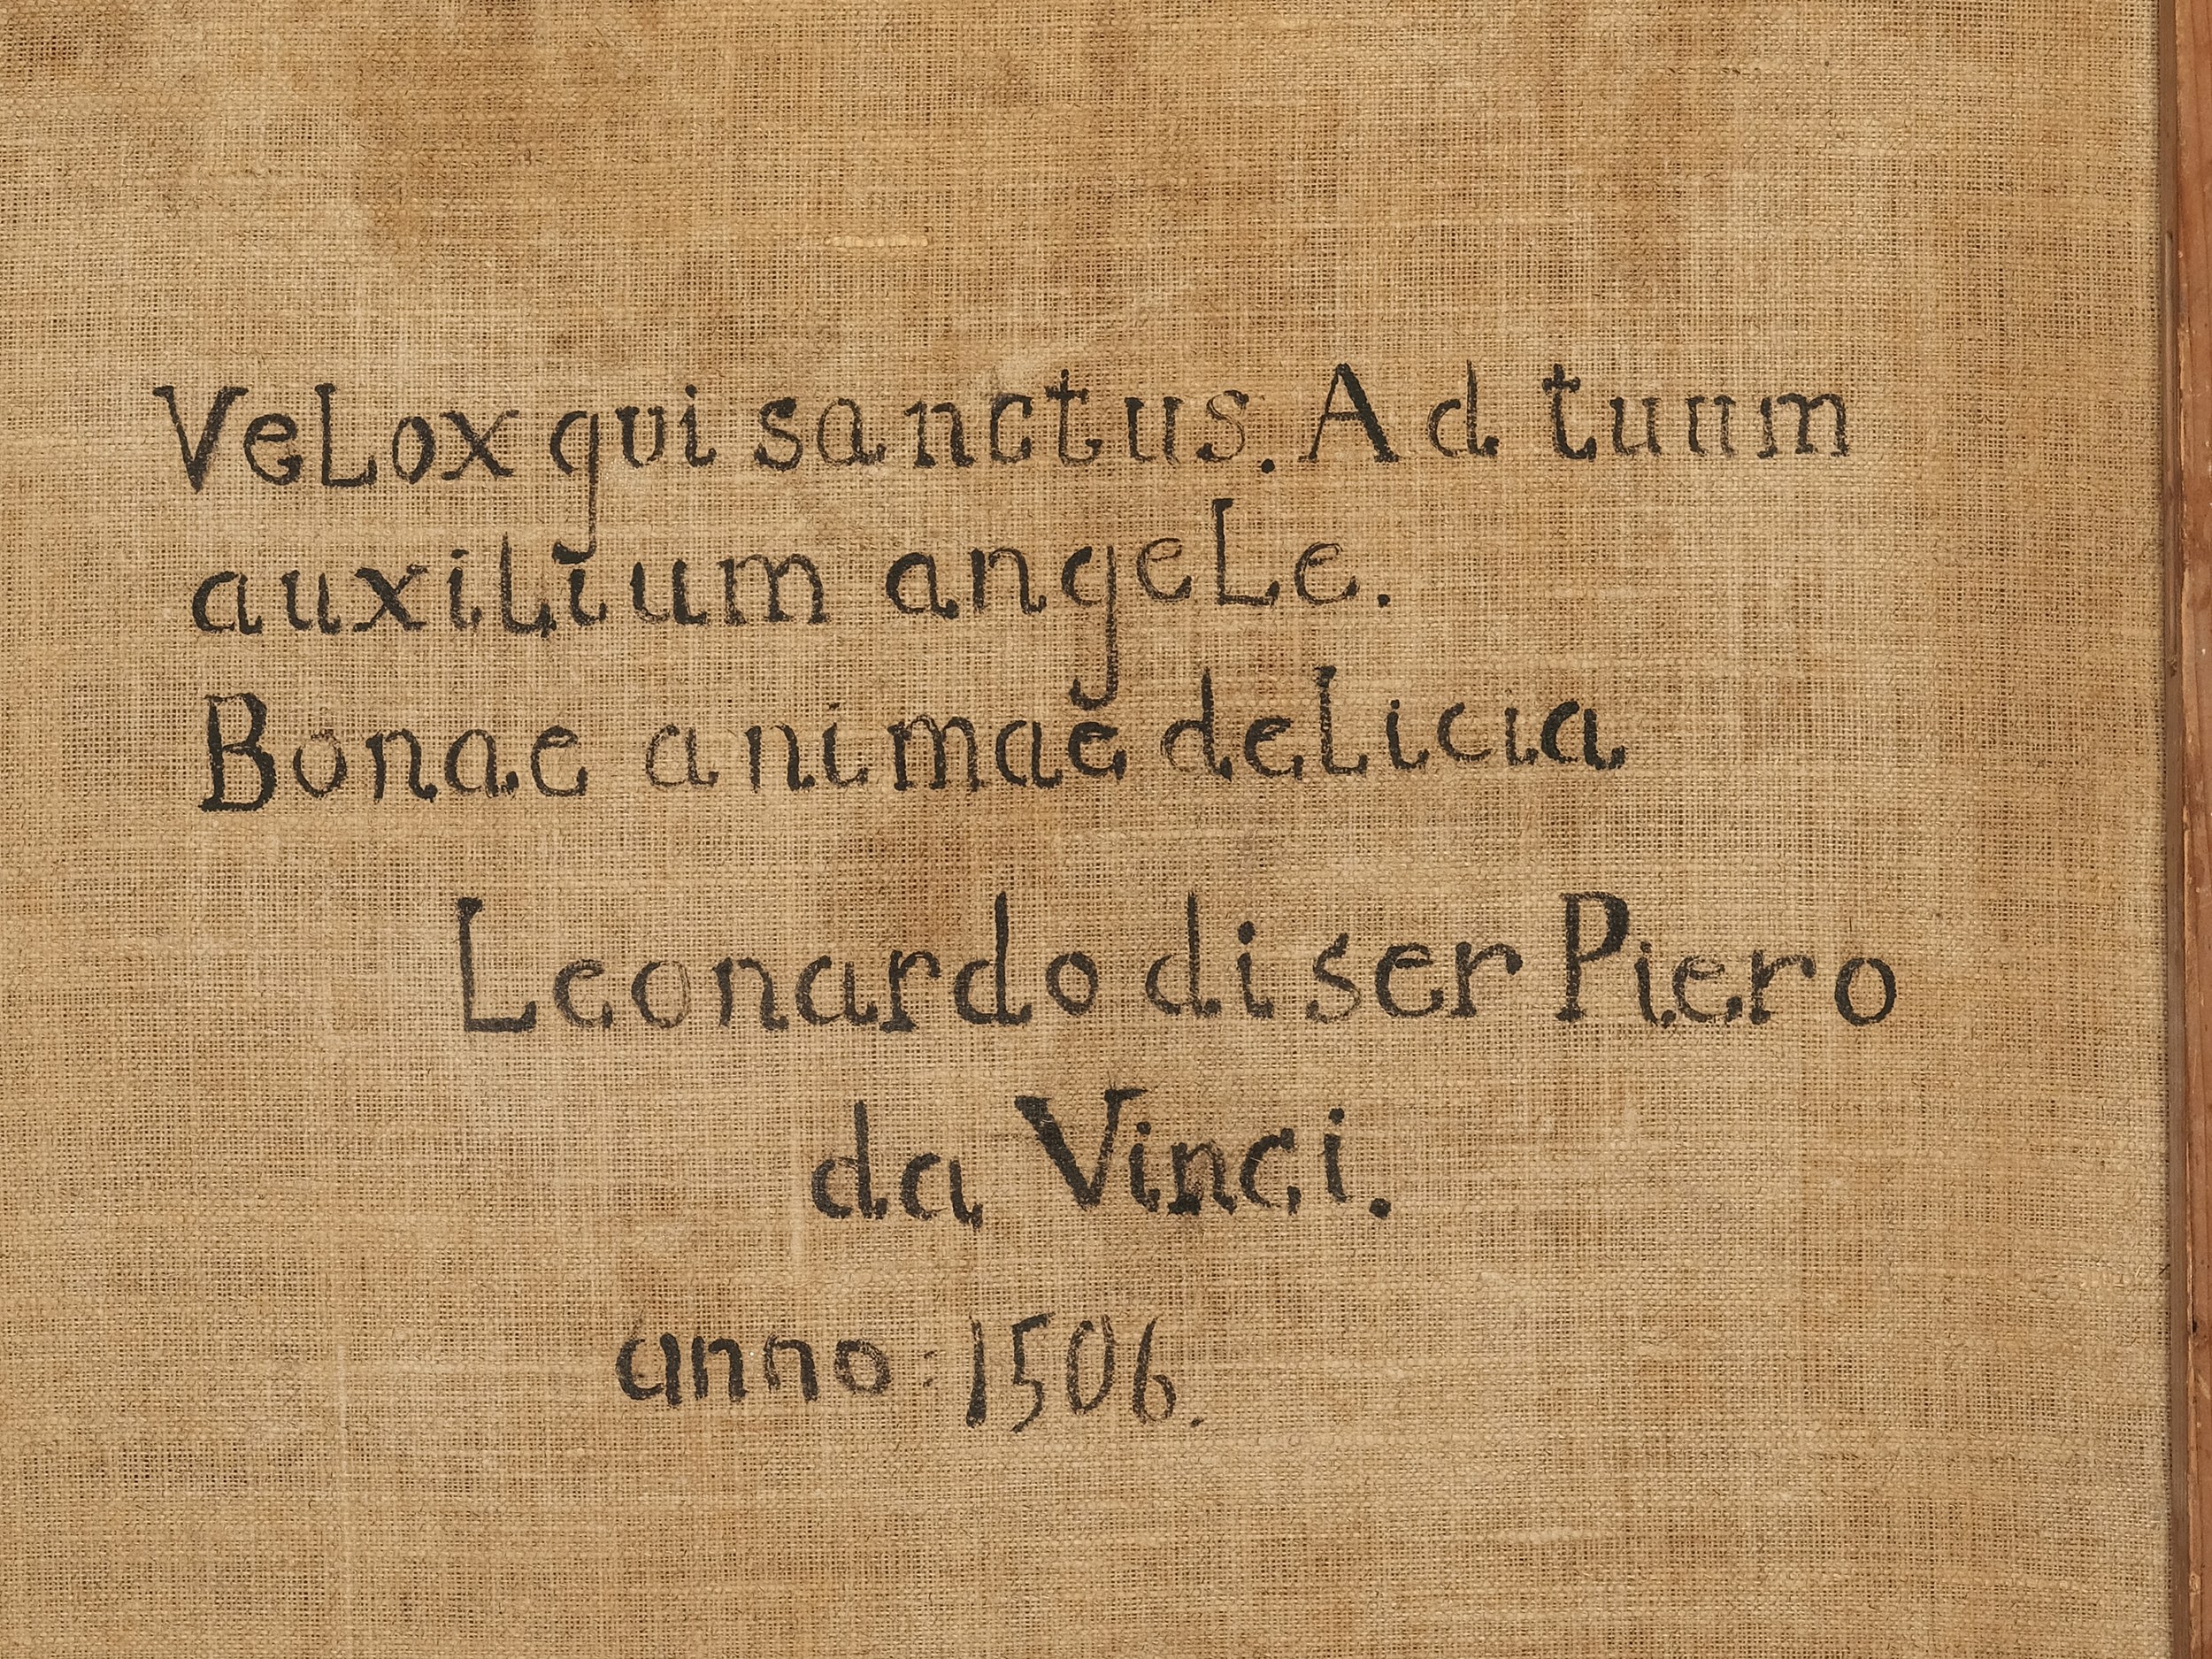 VeLox qui sanctus. Ad tuum
auxiLium angeLe.
Bonae animae deLicia
Leonardo di ser Piero
da Vinci.
anno: 1506.